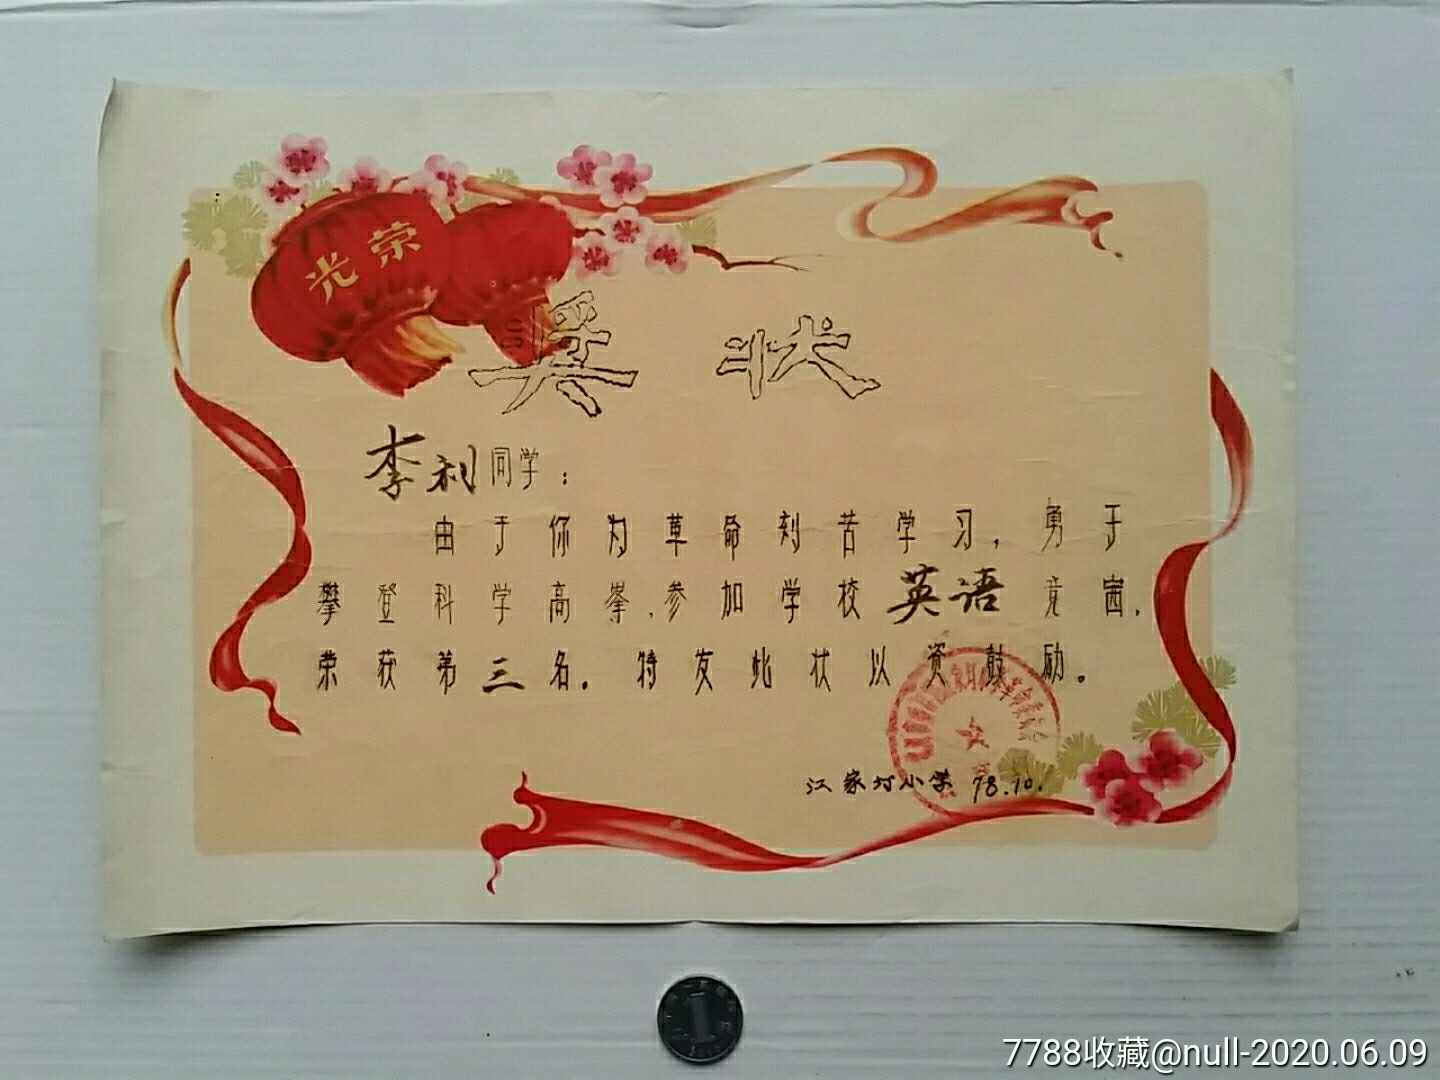 光荣
奖状
李利同学：
由于你为革命刻苦学习，勇于
攀登科学高峯、参加学校英语竞赛，
荣获第三名。特发此状以资鼓励。
江家圩小学 78.10.
7788收藏@null-2020.06.09